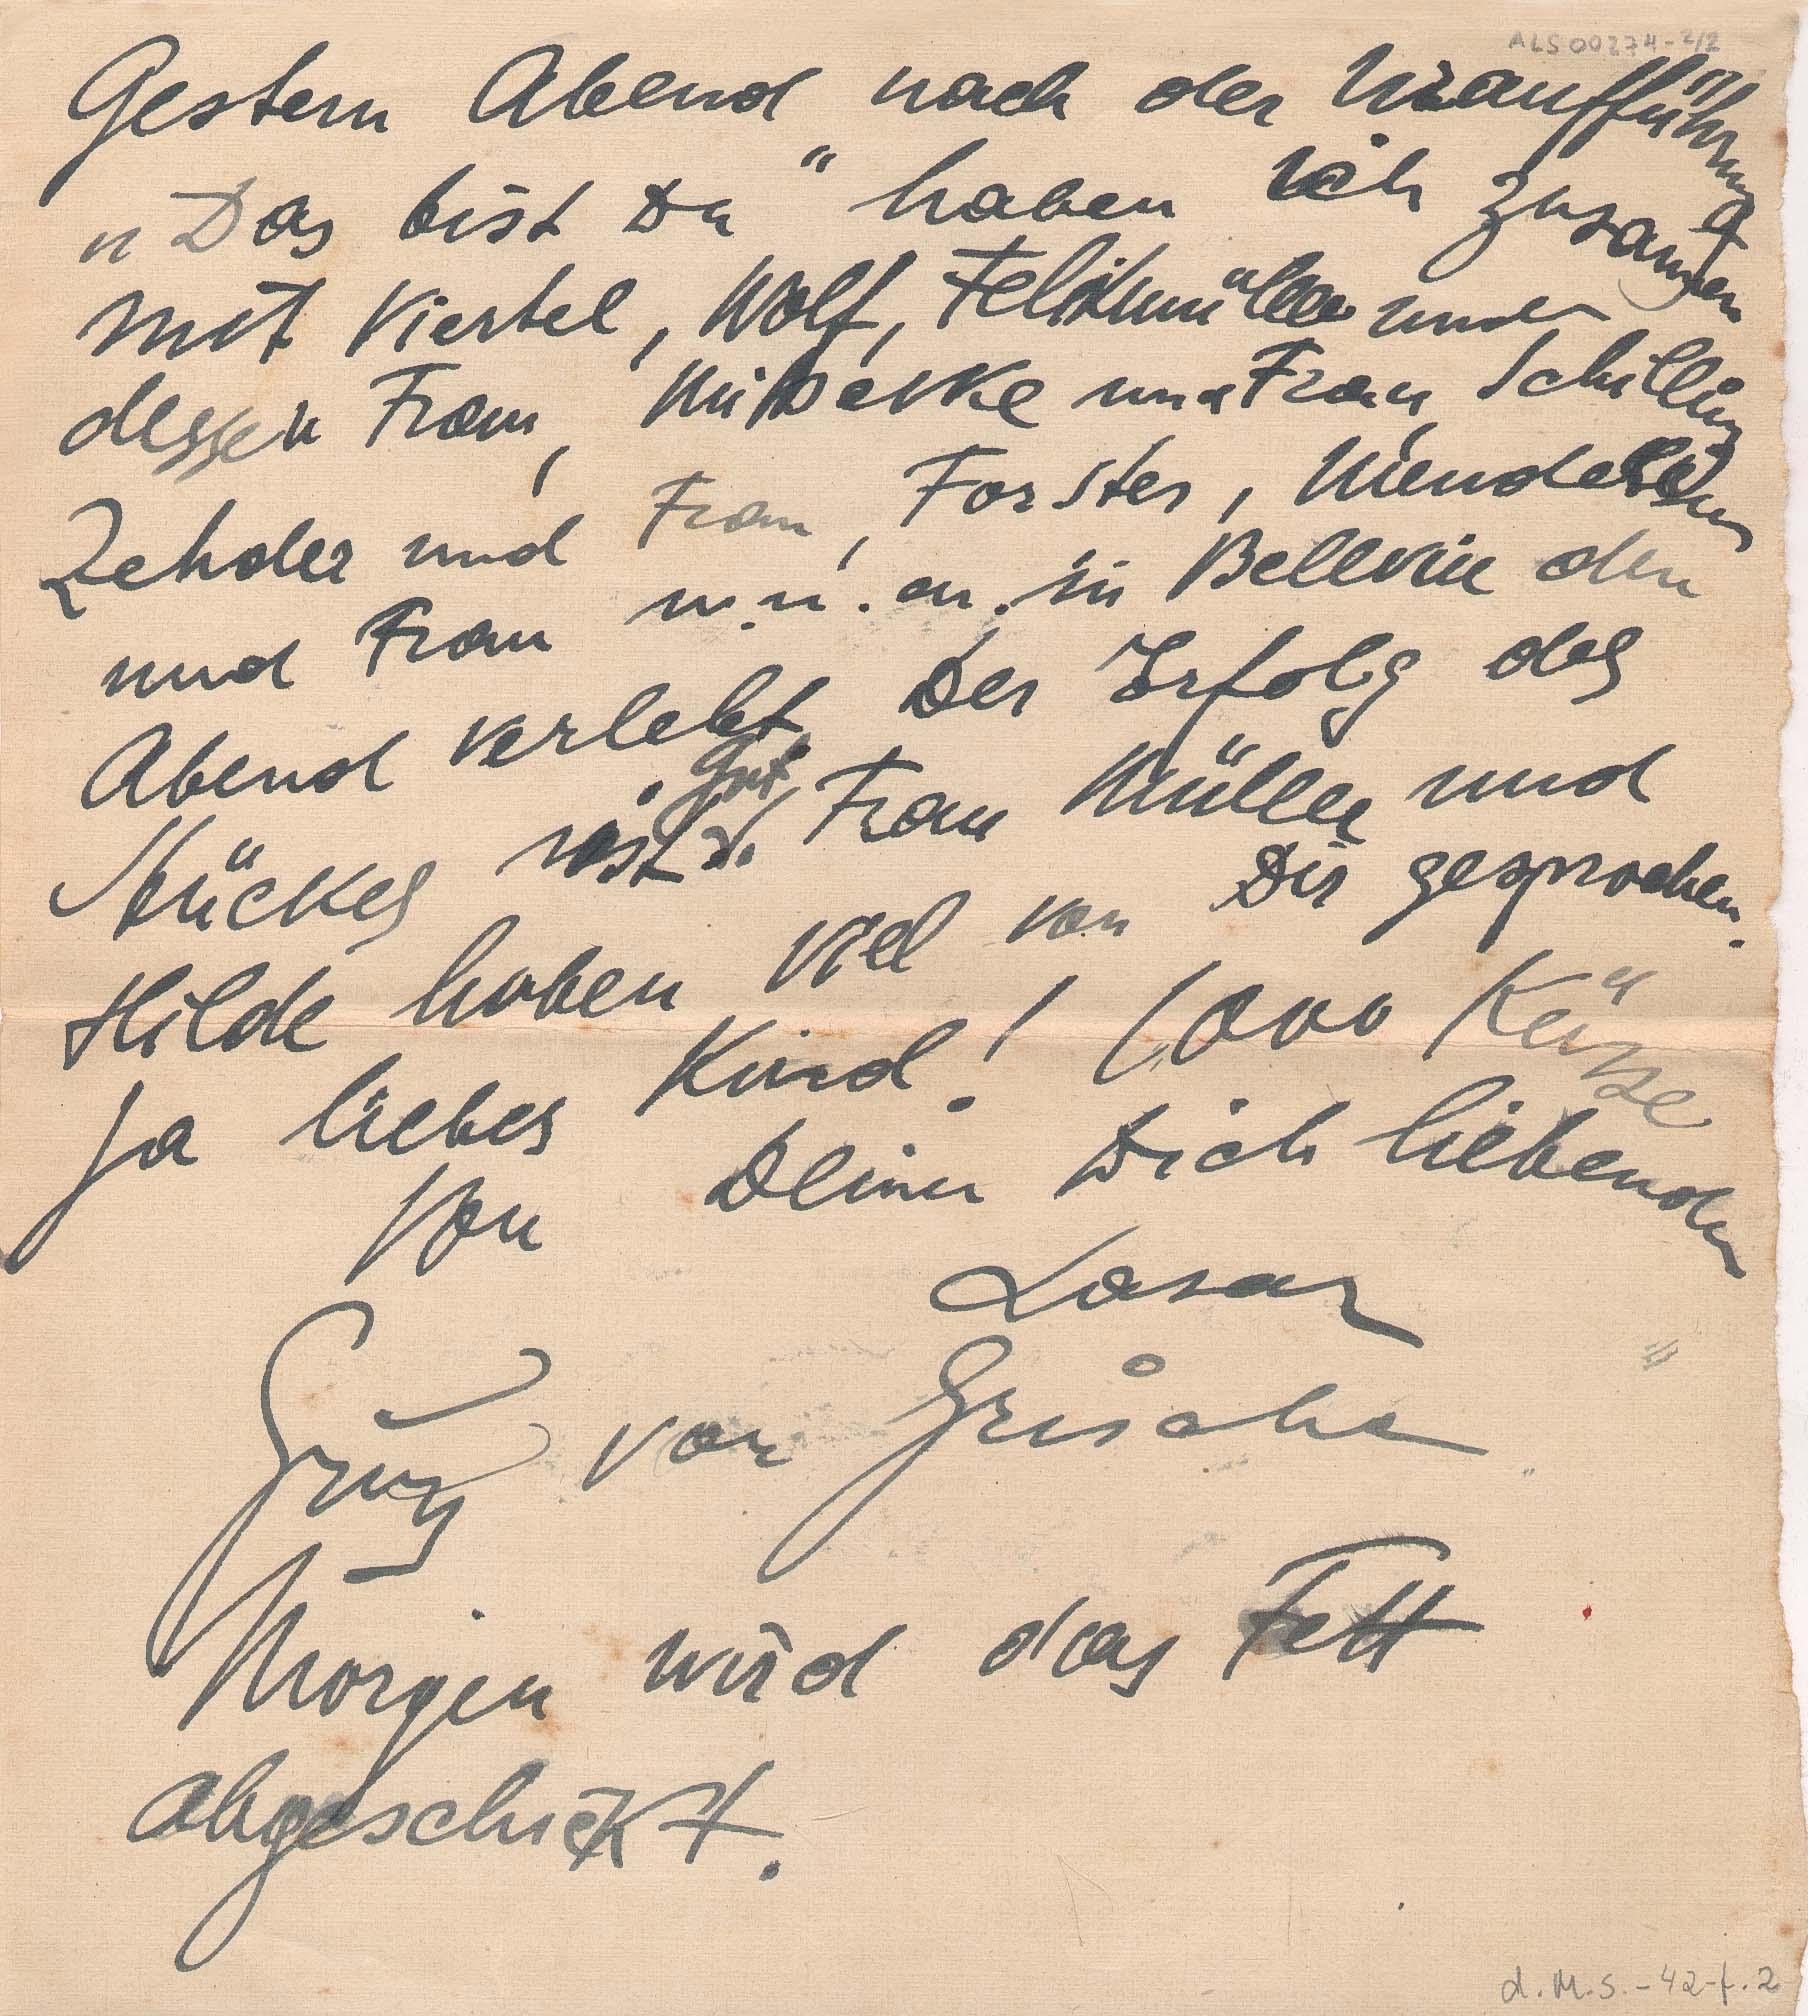 ALS00274-2/2
Gestern Abend nach der Uraufführung
„Das bist Du“ haben ich zusammen
mit Viertel, Wolf, Felixmüller und
dessen Frau, und Frau, Schilling
Zehder und Frau, Forster, Mendelsohn
und Frau u. in Bellevue den
Abend verlebt. Der Erfolg des
Stückes ist gut. Frau Müller und
Hilde haben viel von Dir gesprochen.
Ja liebes Kind! 1000 Küsse
von Deinen Dich liebenden
Lasar
Gruß von Grischa
Morgen wird das Fett
abgeschickt.
d.M.S.-42-f.2